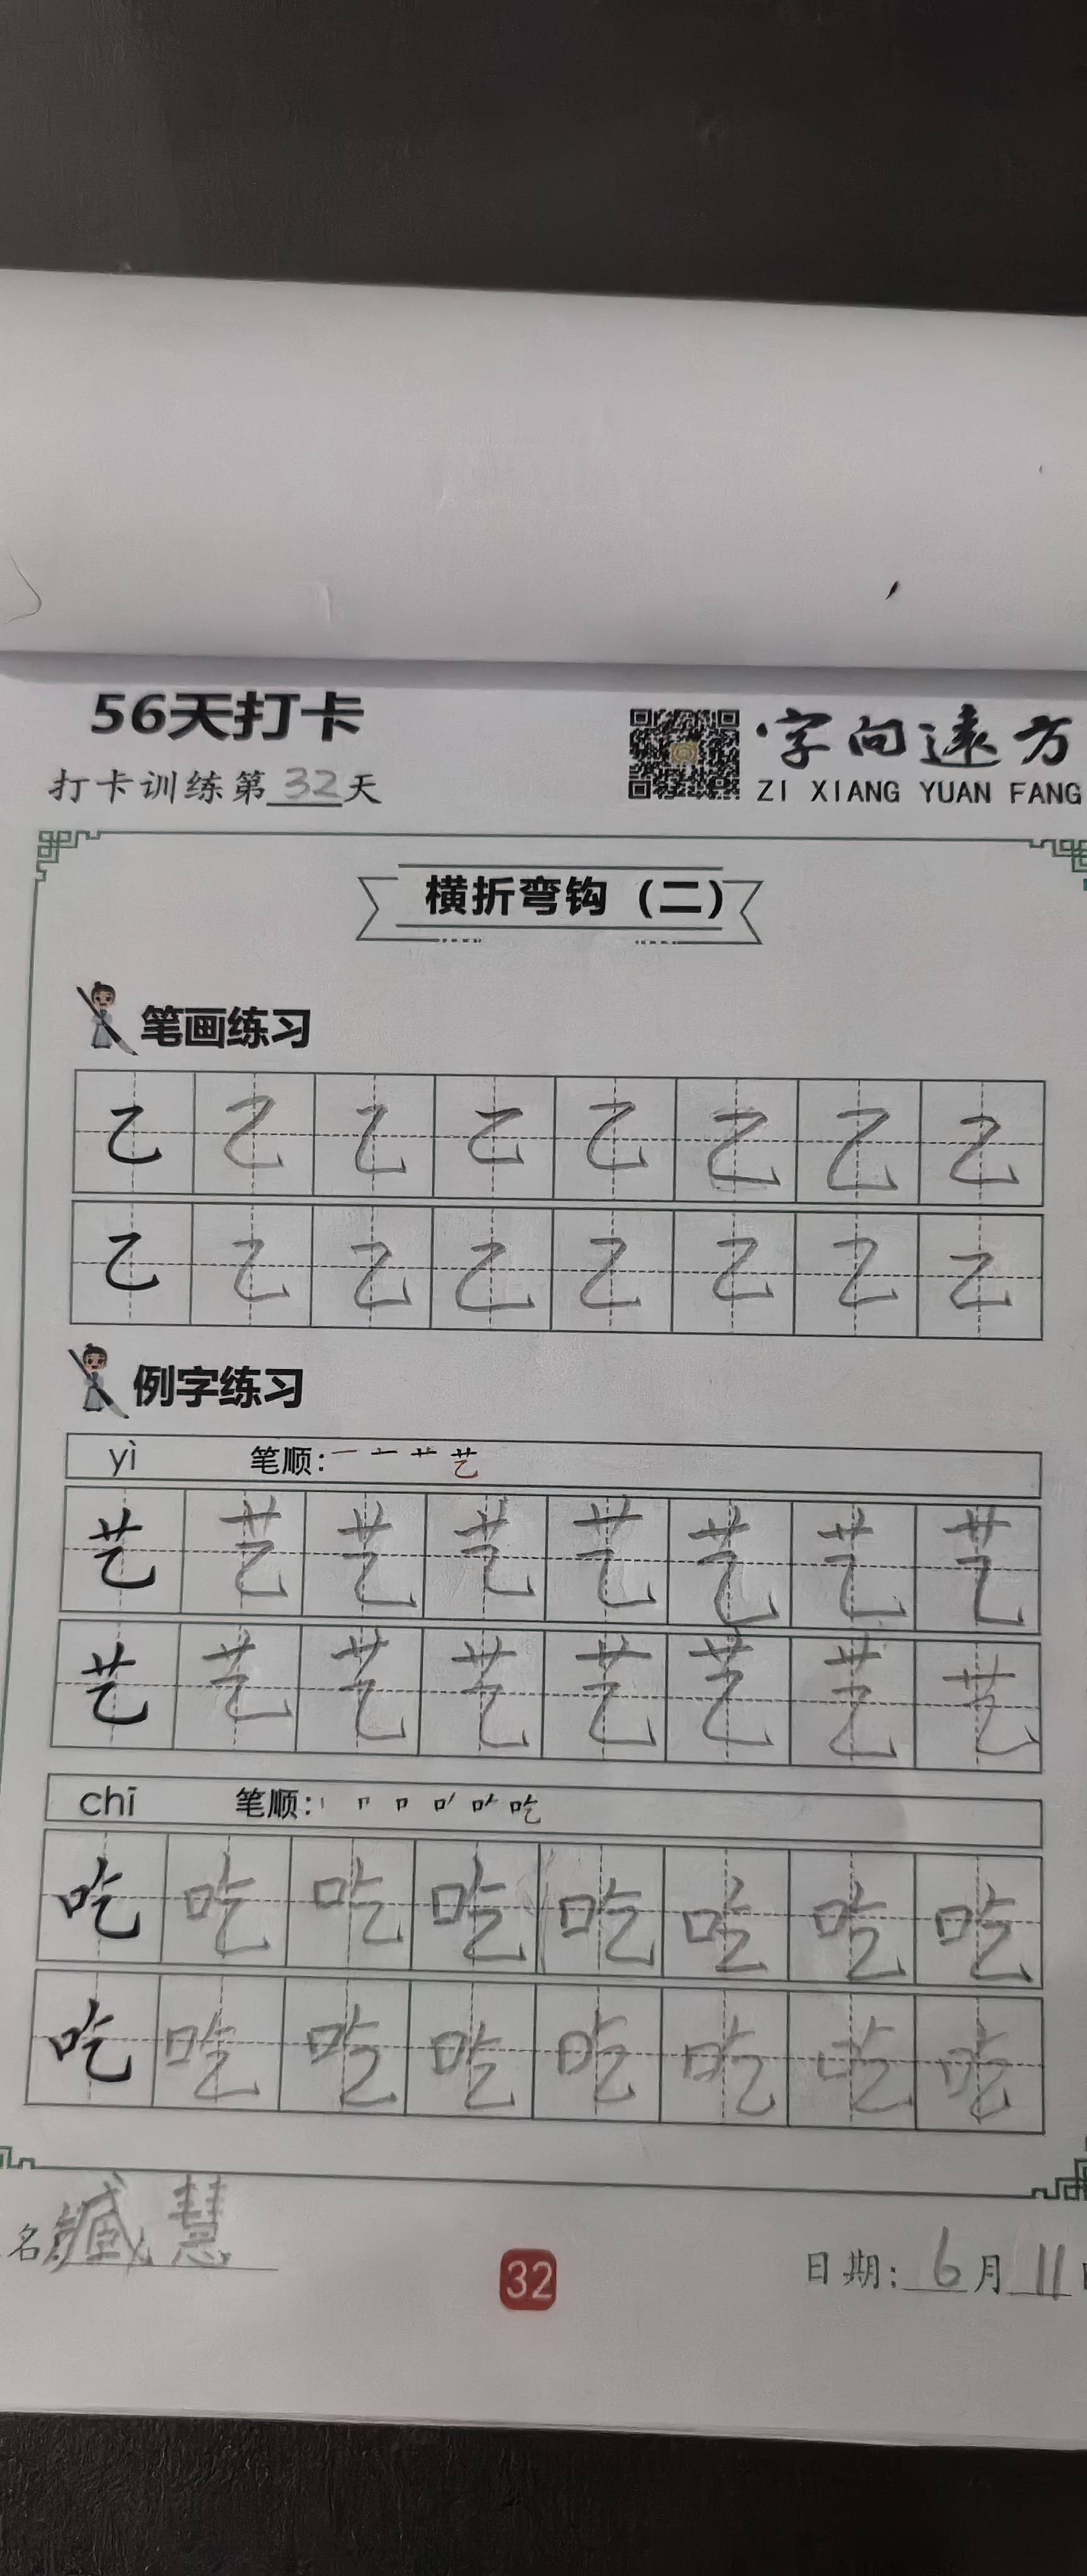 56天打卡
打卡训练第32天
字向遠方
ZI XIANG YUAN FANG
横折弯钩（二）
笔画练习
乙 乙 乙 乙 乙 乙 乙 乙
乙 乙 乙 乙 乙 乙 乙 乙
例字练习
yì 笔顺：
艺 艺 艺 艺 艺 艺 艺 艺
艺 艺 艺 艺 艺 艺 艺 艺
chī 笔顺：
吃 吃 吃 吃 吃 吃 吃 吃
吃 吃 吃 吃 吃 吃 吃 吃
名 臧慧
32
日期：6月11日